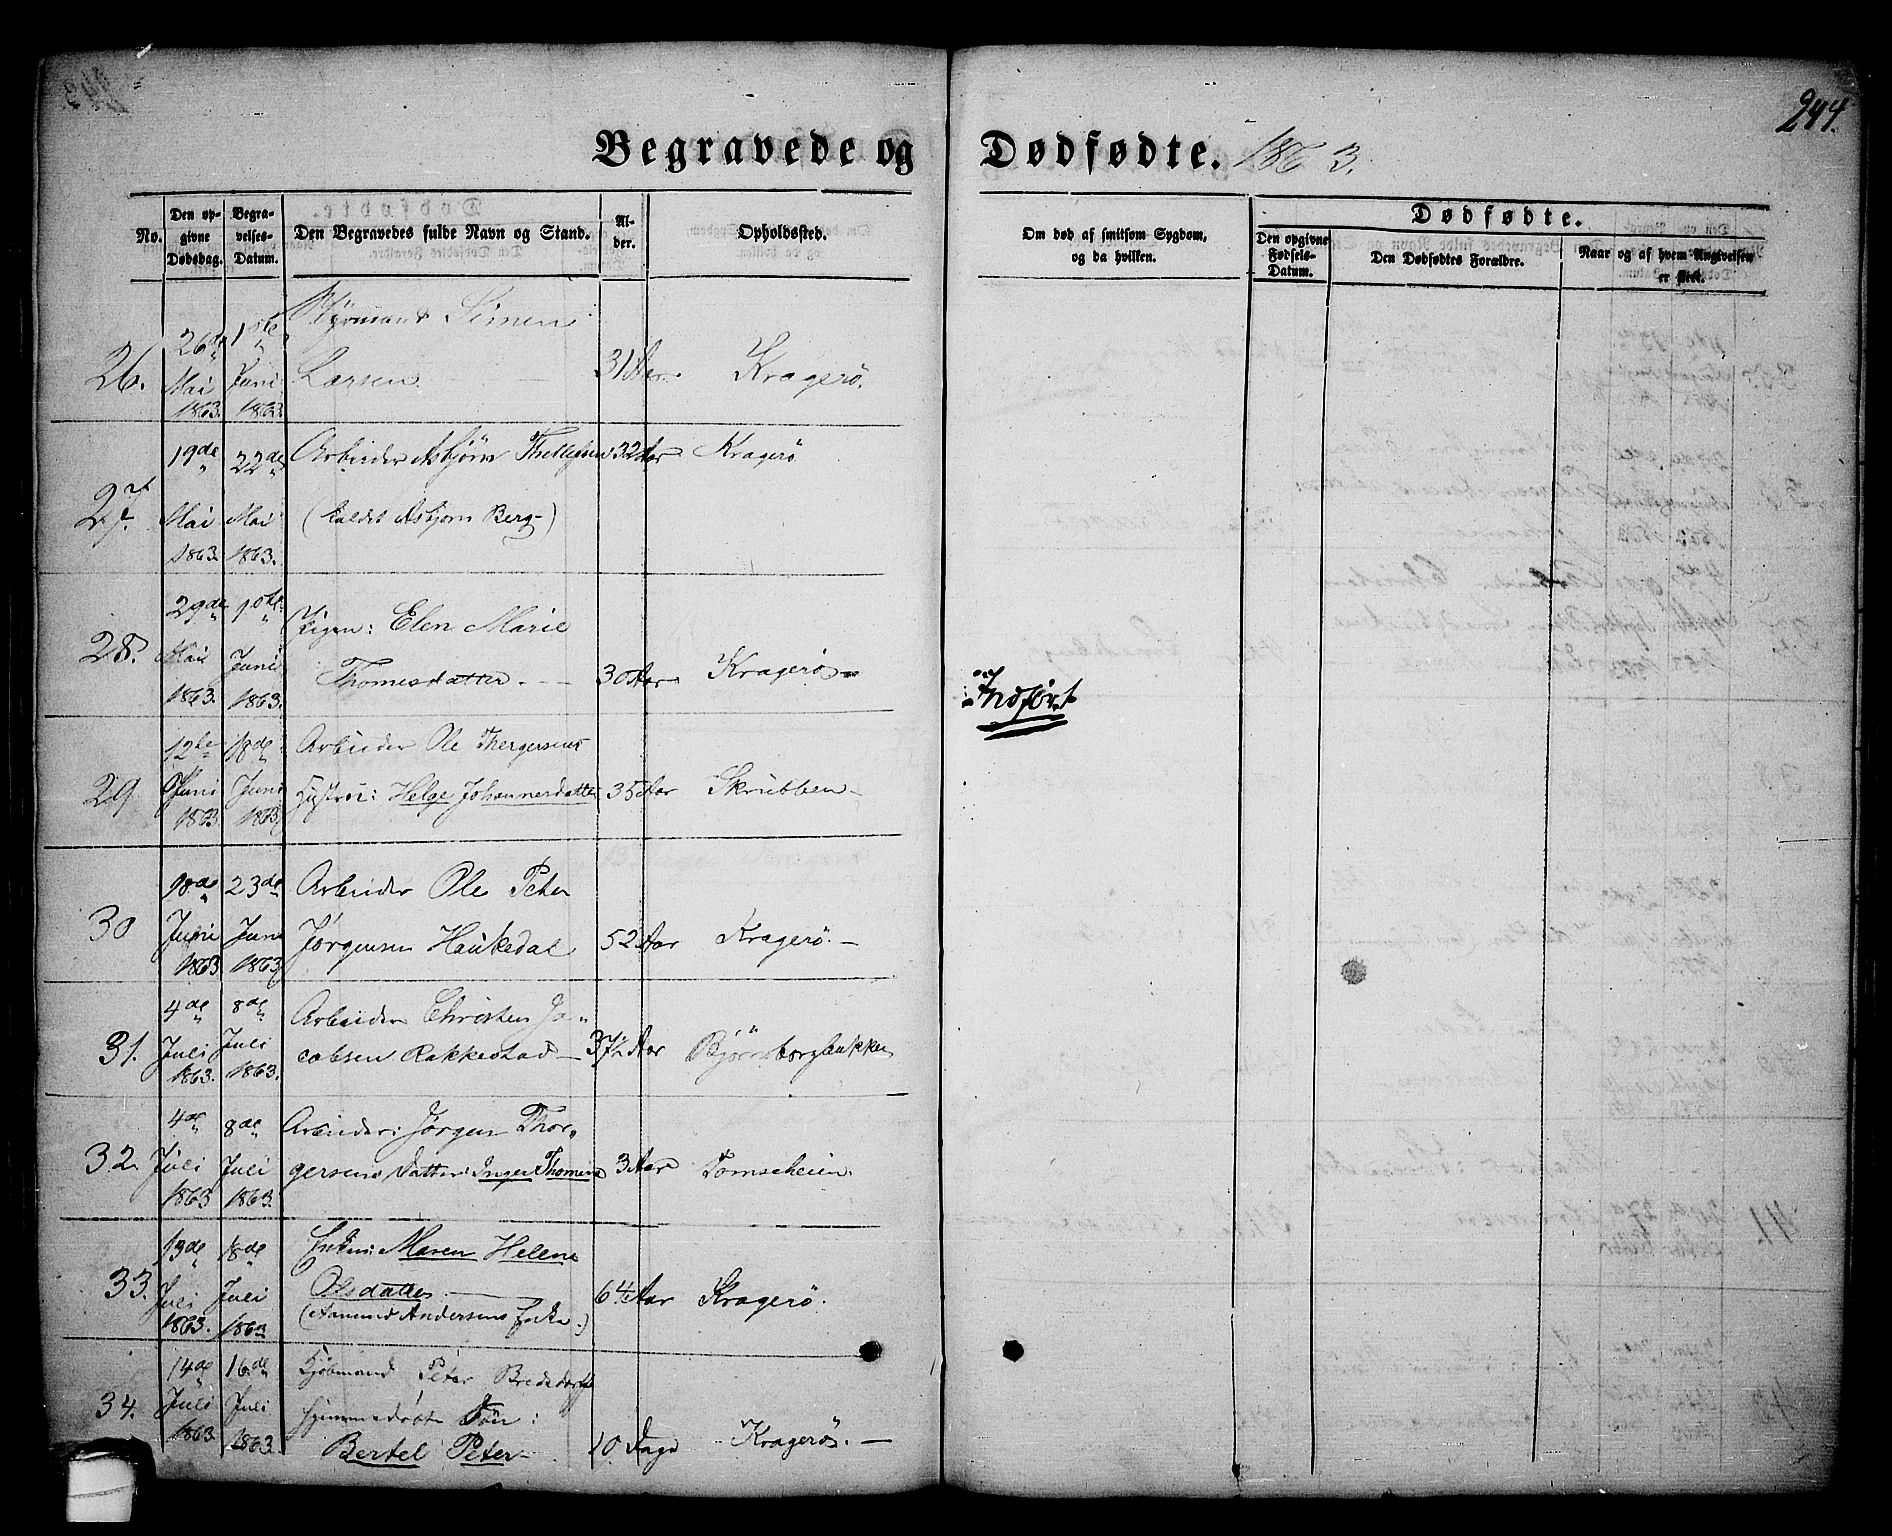 244.
Begravede og Dødfødte. 1863.
No.
Den op-
givne
Dødsdag.
Begra-
velses-
Datum.
Den Begravedes fulde Navn og Stand.
Al-
der.
Opholdssted.
Om død af smitsom Sygdom,
og da hvilken.
Dødfødte.
Den opgivne
Fødsels-
Datum.
Den Dødfødtes Forældre.
Naar og af hvem Angivelsen
er skeet.
26.
26de
Mai
1863.
1ste
Juni
1863.
Styrmand Simen
Larsen
31 Aar
Kragerö.
27.
19de
Mai
1863.
22de
Mai
1863.
Arbeider Asbjørn Thellefsen
(kaldet Asbjørn Berg)
32 Aar
Kragerö
28.
29de
Mai
1863.
10te
Juni
1863.
Pigen: Elen Marie
Thomesdatter.
30 Aar
Kragerö
29
12te
Juni
1863.
18de
Juni
1863.
Arbeider Ole Thergersens
Hustroe: Helge Johannesdatter
35 Aar
Skrubben
30
18de
Juni
1863
23de
Juni
1863
Arbeider Ole Peter
Jörgensen Haukedal
52 Aar
Kragerö.
31.
4de
Juli
1863.
8de
Juli
1863.
Arbeider Christen Ja-
cobsen Rakkestad
37½ Aar
Bjørnsborgbakken
32.
4de
Juli
1863
8de
Juli
1863.
Arbeider: Jørgen Thor-
gersens Datter: Inger Thomene
3 Aar
Tomseheien.
33.
13de
Juli
1863.
18de
Juli
1863
Enken: Maren Helene
Olsdatter
(Aamund Andersens Enke.)
64 Aar
Kragerö.
34.
14de
Juli
1863.
16de
Juli
1863.
Kjöbmand Peter Bredsdorfs
hjemmedöbte Sön:
Bertel Peter
10 Dage
Kragerö.
Indført